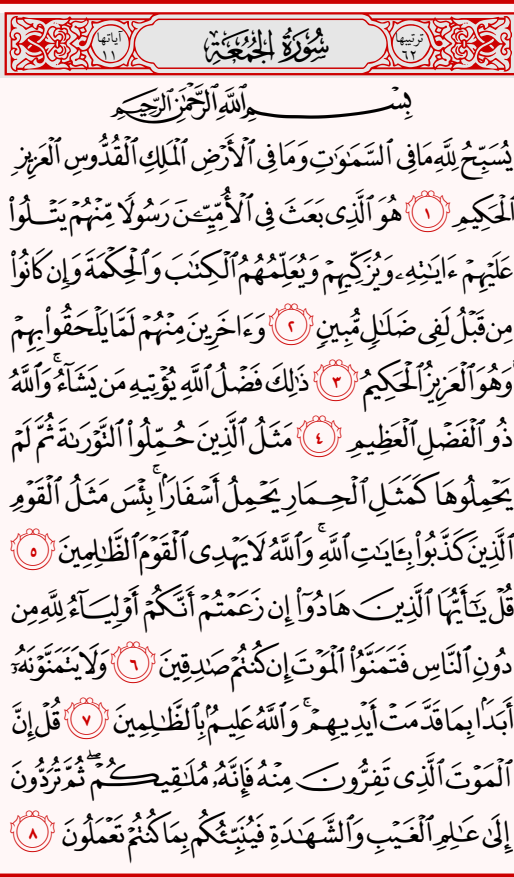 ترتيبها ٦٢ سُورَةُ الجُمُعَةِ آياتها ١١
بِسۡمِ ٱللَّهِ ٱلرَّحۡمَٰنِ ٱلرَّحِيمِ
يُسَبِّحُ لِلَّهِ مَا فِي ٱلسَّمَٰوَٰتِ وَمَا فِي ٱلۡأَرۡضِ ٱلۡمَلِكِ ٱلۡقُدُّوسِ ٱلۡعَزِيزِ
ٱلۡحَكِيمِ ١ هُوَ ٱلَّذِي بَعَثَ فِي ٱلۡأُمِّيِّـۧنَ رَسُولٗا مِّنۡهُمۡ يَتۡلُواْ
عَلَيۡهِمۡ ءَايَٰتِهِۦ وَيُزَكِّيهِمۡ وَيُعَلِّمُهُمُ ٱلۡكِتَٰبَ وَٱلۡحِكۡمَةَ وَإِن كَانُواْ
مِن قَبۡلُ لَفِي ضَلَٰلٖ مُّبِينٖ ٢ وَءَاخَرِينَ مِنۡهُمۡ لَمَّا يَلۡحَقُواْ بِهِمۡۚ
وَهُوَ ٱلۡعَزِيزُ ٱلۡحَكِيمُ ٣ ذَٰلِكَ فَضۡلُ ٱللَّهِ يُؤۡتِيهِ مَن يَشَآءُۚ وَٱللَّهُ
ذُو ٱلۡفَضۡلِ ٱلۡعَظِيمِ ٤ مَثَلُ ٱلَّذِينَ حُمِّلُواْ ٱلتَّوۡرَىٰةَ ثُمَّ لَمۡ
يَحۡمِلُوهَا كَمَثَلِ ٱلۡحِمَارِ يَحۡمِلُ أَسۡفَارَۢاۚ بِئۡسَ مَثَلُ ٱلۡقَوۡمِ
ٱلَّذِينَ كَذَّبُواْ بِـَٔايَٰتِ ٱللَّهِۚ وَٱللَّهُ لَا يَهۡدِي ٱلۡقَوۡمَ ٱلظَّٰلِمِينَ ٥
قُلۡ يَٰٓأَيُّهَا ٱلَّذِينَ هَادُوٓاْ إِن زَعَمۡتُمۡ أَنَّكُمۡ أَوۡلِيَآءُ لِلَّهِ مِن
دُونِ ٱلنَّاسِ فَتَمَنَّوُاْ ٱلۡمَوۡتَ إِن كُنتُمۡ صَٰدِقِينَ ٦ وَلَا يَتَمَنَّوۡنَهُۥٓ
أَبَدَۢا بِمَا قَدَّمَتۡ أَيۡدِيهِمۡۚ وَٱللَّهُ عَلِيمُۢ بِٱلظَّٰلِمِينَ ٧ قُلۡ إِنَّ
ٱلۡمَوۡتَ ٱلَّذِي تَفِرُّونَ مِنۡهُ فَإِنَّهُۥ مُلَٰقِيكُمۡۖ ثُمَّ تُرَدُّونَ
إِلَىٰ عَٰلِمِ ٱلۡغَيۡبِ وَٱلشَّهَٰدَةِ فَيُنَبِّئُكُم بِمَا كُنتُمۡ تَعۡمَلُونَ ٨